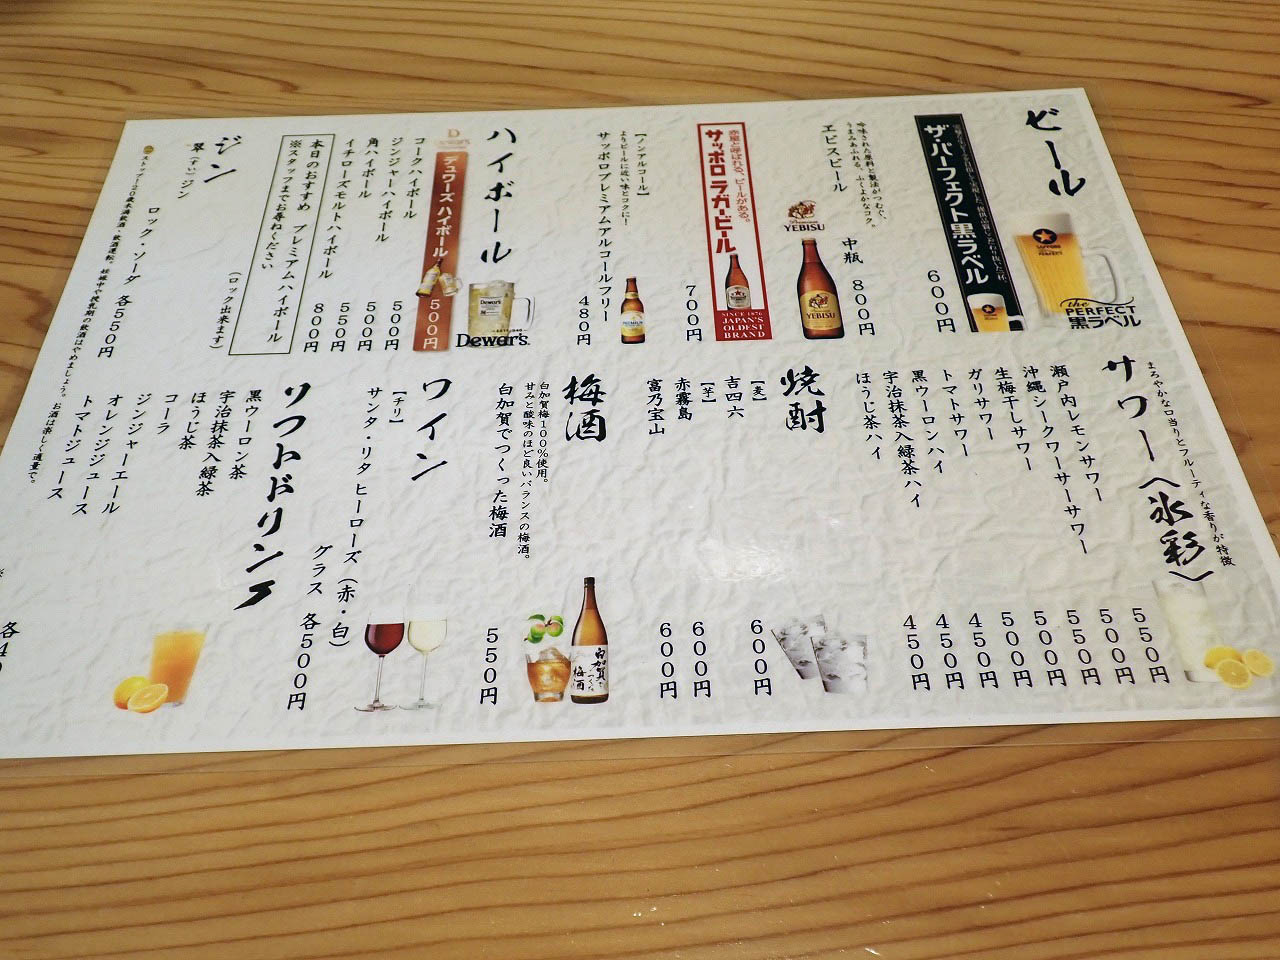 ビール
ザ・パーフェクト黒ラベル
600円
SAPPORO
PERFECT
the
PERFECT
黒ラベル
吟味された原料と製法がつむぐ、
うまみあふれる、ふくよかなコク。
ヱビスビール
中瓶
800円
Premium
YEBISU
YEBISU
赤星と呼ばれる、ビールがある。
サッポロラガービール
SINCE 1876
JAPAN'S
OLDEST
BRAND
700円
【ノンアルコール】
よりビールに近い味とコクに!
サッポロプレミアムアルコールフリー
480円
ハイボール
Dewar's
デュワーズ ハイボール
500円
Dewar's
Dewar's.
コークハイボール
500円
ジンジャーハイボール
500円
角ハイボール
550円
イチローズモルトハイボール
800円
本日のおすすめ プレミアムハイボール
※スタッフまでお尋ねください
(ロック出来ます)
ジン
翠(すい)ジン
ロック・ソーダ 各550円
ストップ!20歳未満飲酒・飲酒運転。妊娠中や授乳期の飲酒はやめましょう。お酒は楽しく適量で。
サワー〈氷彩〉
まろやかな口当りとフルーティな香りが特徴
瀬戸内レモンサワー
550円
沖縄シークワーサーサワー
550円
生梅干しサワー
550円
ガリサワー
500円
トマトサワー
500円
黒ウーロンハイ
450円
宇治抹茶入緑茶ハイ
450円
ほうじ茶ハイ
450円
焼酎
【麦】
吉四六
600円
【芋】
赤霧島
600円
富乃宝山
600円
梅酒
白加賀梅100%使用。
甘みと酸味のほど良いバランスの梅酒。
白加賀でつくった梅酒
550円
白加賀で
つくった
梅酒
ワイン
【チリ】
サンタ・リタ ヒーローズ(赤・白)
グラス 各500円
ソフトドリンク
黒ウーロン茶
宇治抹茶入緑茶
ほうじ茶
コーラ
ジンジャーエール
オレンジジュース
トマトジュース
各4